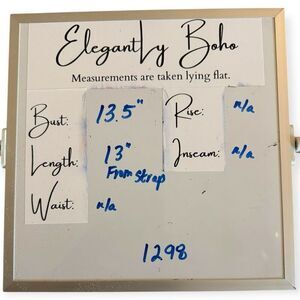 Elegantly Boho
Measurements are taken lying flat.
Bust: 13.5" Rise: n/a
Length: 13" Inseam: n/a
From strap
Waist: n/a
1298